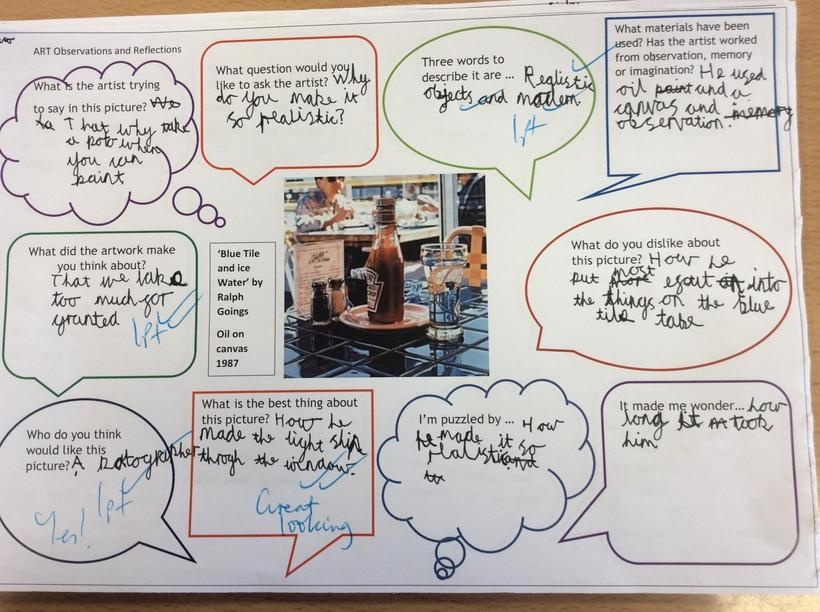 ART Observations and Reflections
What is the artist trying
to say in this picture?
That why take
a poto when
you can
paint
What question would you
like to ask the artist? Why
do you make it
so realistic?
Three words to
describe it are ... Realistic
objects and modern.
1pt
What materials have been
used? Has the artist worked
from observation, memory
or imagination? He used
oil paint and a
canvas and memory
observation.
What did the artwork make
you think about?
That we take
too much for
granted
1pt
'Blue Tile
and ice
Water' by
Ralph
Goings
Oil on
canvas
1987
What do you dislike about
this picture? How he
put most into
the things on the blue
tile
Who do you think
would like this
picture? A Potographer
1pt
Yes!
What is the best thing about
this picture? How he
made the light shin
throgh the window.
Great
looking
I'm puzzled by ... How
he made it so
realistic
It made me wonder... how
long it took
him